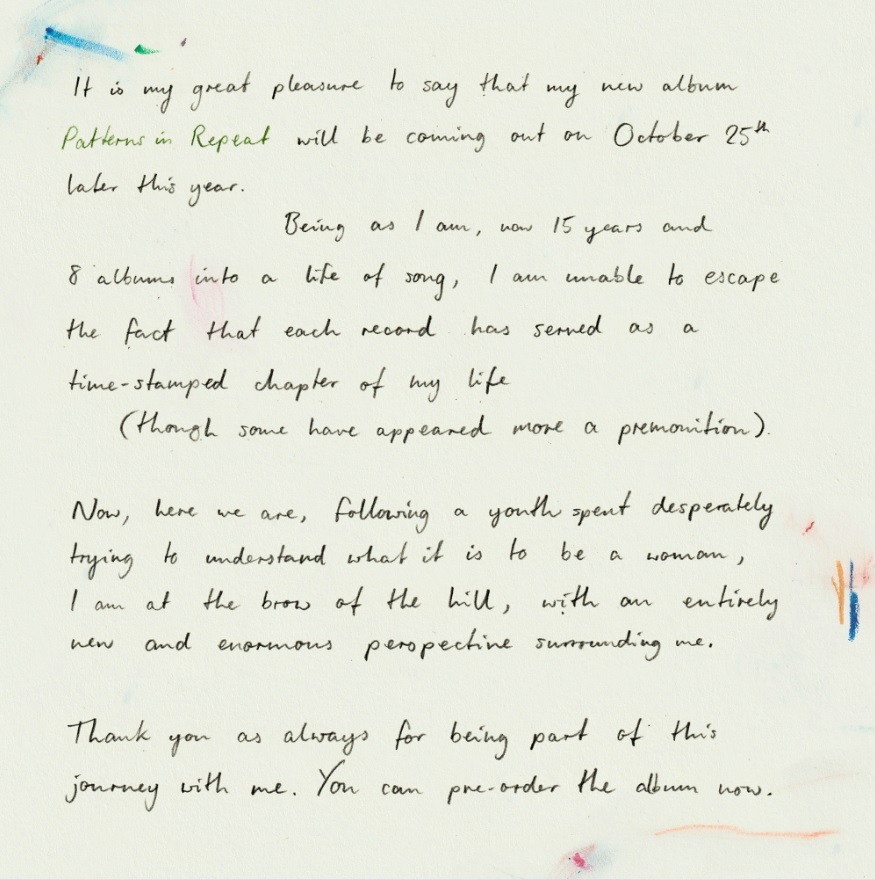 It is my great pleasure to say that my new album
Patterns in Repeat will be coming out on October 25th
later this year.
Being as I am, now 15 years and
8 albums into a life of song, I am unable to escape
the fact that each record has served as a
time-stamped chapter of my life
(though some have appeared more a premonition).
Now, here we are, following a youth spent desperately
trying to understand what it is to be a woman,
I am at the brow of the hill, with an entirely
new and enormous perspective surrounding me.
Thank you as always for being part of this
journey with me. You can pre-order the album now.